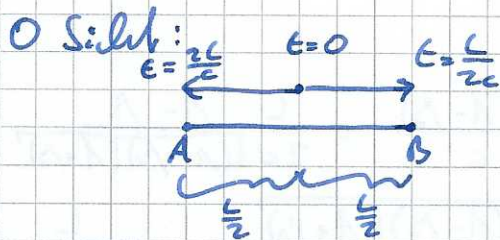 O Sicht:
t=2L/c t=0 t=L/2c
A B
L/2 L/2